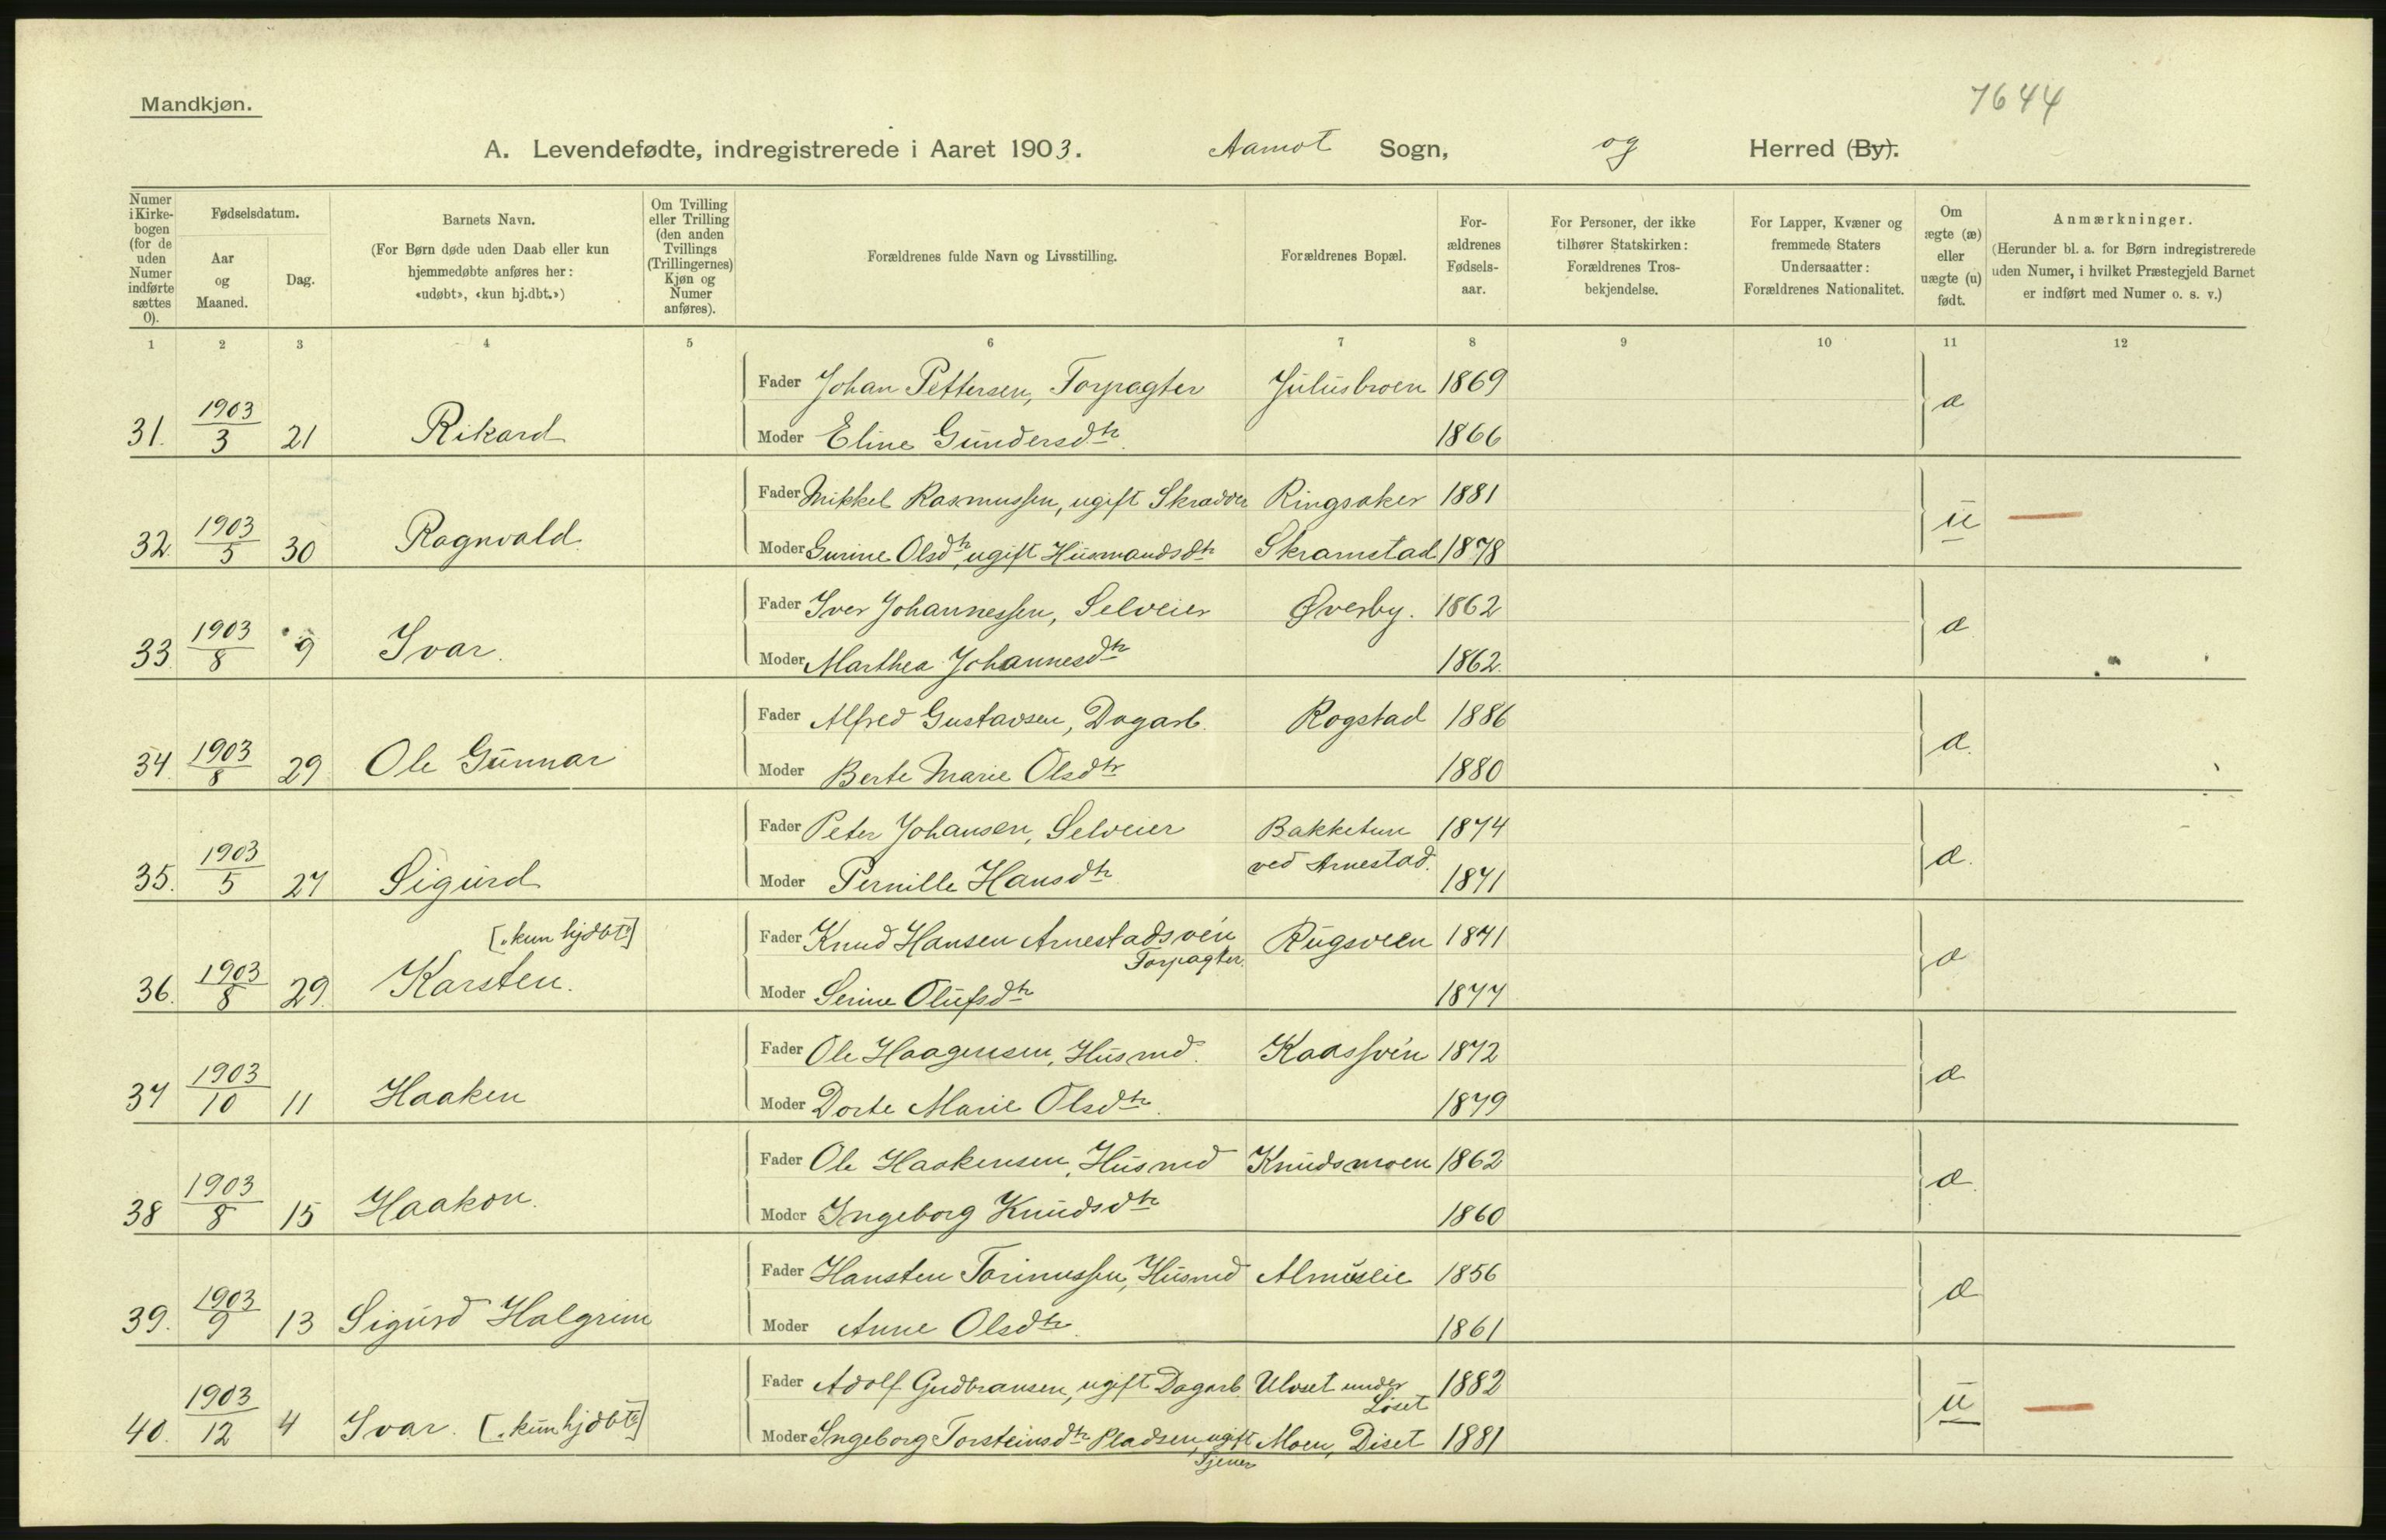 Mandkjøn.
7644
A. Levendefødte, indregistrerede i Aaret 1903. Aamot Sogn, og Herred (By).
Numer i Kirke-bogen (for de uden Numer indførte sættes 0).
Fødselsdatum.
Aar og Maaned.
Dag.
Barnets Navn.
(For Børn døde uden Daab eller kun hjemmedøbte anføres her: «udøbt», «kun hj.dbt.»)
Om Tvilling eller Trilling (den anden Tvillings (Trillingernes) Kjøn og Numer anføres).
Forældrenes fulde Navn og Livsstilling.
Forældrenes Bopæl.
For-ældrenes Fødsels-aar.
For Personer, der ikke tilhører Statskirken: Forældrenes Tros-bekjendelse.
For Lapper, Kvæner og fremmede Staters Undersaatter: Forældrenes Nationalitet.
Om ægte (æ) eller uægte (u) født.
Anmærkninger.
(Herunder bl. a. for Børn indregistrerede uden Numer, i hvilket Præstegjeld Barnet er indført med Numer o. s. v.)
1 2 3 4 5 6 7 8 9 10 11 12
Fader Johan Pettersen, Forpagter Julusbroen 1869
31. 1903/3 21 Rikard æ
Moder Eline Gundersdtr. 1866
Fader Mikkel Rasmussen, ugift Skrædder Ringsaker 1881
32. 1903/5 30 Ragnvald u
Moder Gurine Olsdtr, ugift Husmandsdtr Skramstad 1878
Fader Iver Johannessen, Selveier Øverby. 1862
33. 1903/8 9 Ivar. æ
Moder Marthea Johannesdtr 1862.
Fader Alfred Gustavsen, Dagarb. Rogstad 1886
34. 1903/8 29 Ole Gunnar æ.
Moder Berte Marie Olsdtr 1880
Fader Peter Johansen, Selveier Bakketun 1874
35. 1903/5 27 Sigurd ved Arnestad. æ.
Moder Pernille Hansdtr 1871
[„kun hjdbt“]
Fader Knud Hansen Arnestadsvén Rugsveen 1871
Forpagter.
36. 1903/8 29. Karsten. æ
Moder Serine Olufsdtr 1877
Fader Ole Haagensen, Husmd. Kaassvén 1872
37 1903/10 11 Haaken æ
Moder Dorte Marie Olsdtr. 1879
Fader Ole Haakensen, Husmd Knudsmoen 1862
38 1903/8 15 Haakon. æ.
Moder Ingeborg Knudsdtr 1860
Fader Hansten Torinussen, Husmd Almuslie 1856
39. 1903/9 13 Sigurd Halgrim æ
Moder Anne Olsdtr. 1861
Fader Adolf Gudbransen, ugift Dagarb. Ulvset under 1882
Løset
40. 1903/12 4 Ivar. [„kun hjdbt“] u
Moder Ingeborg Torsteinsdtr Pladsen, ugift Moen, Diset 1881
Tjener